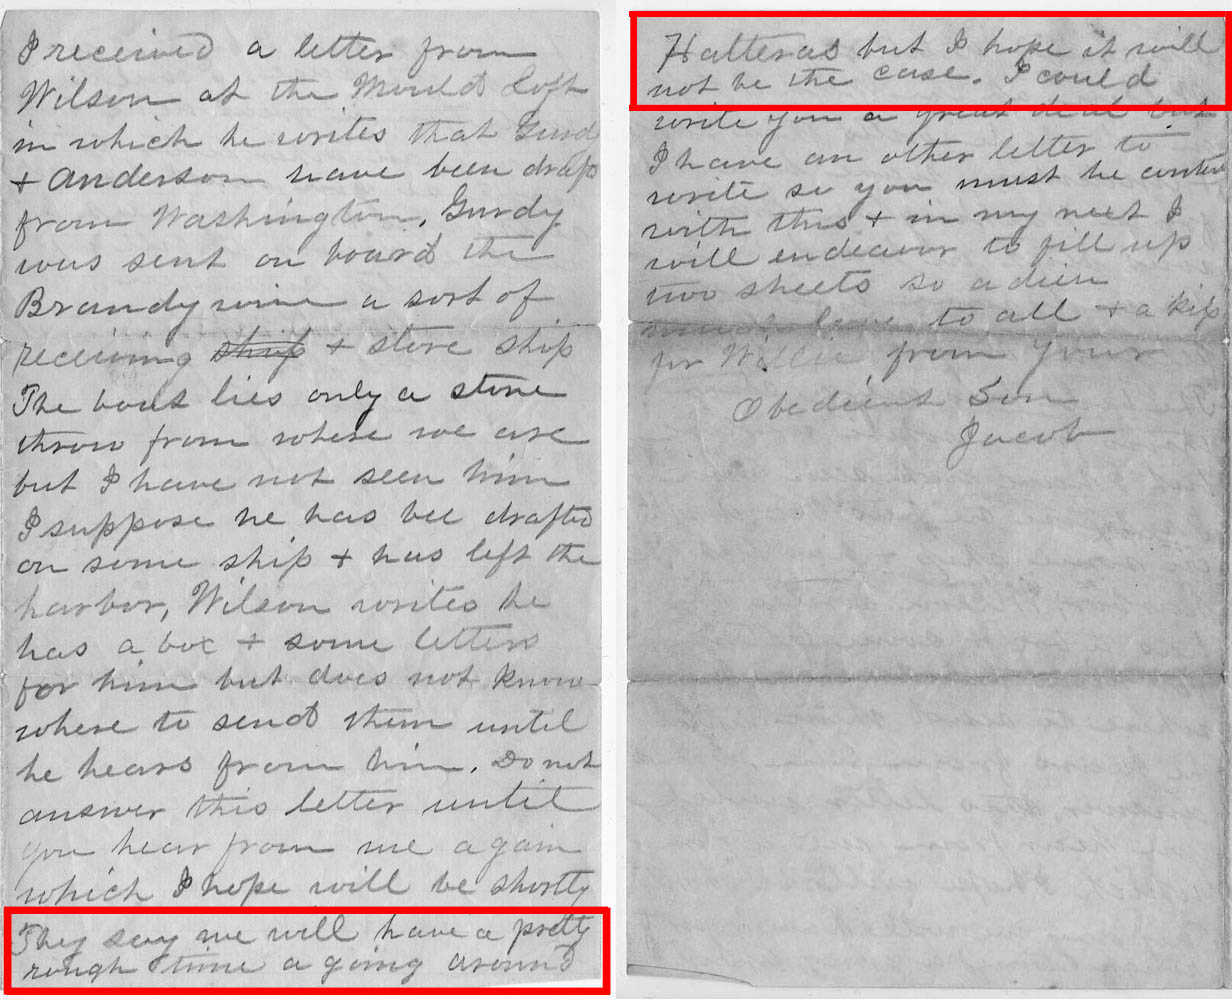 I received a letter from
Wilson at the Mould Loft
in which he writes that Gurdy
+ Anderson have been draft
from Washington, Gurdy
was sent on board the
Brandywine a sort of
receiving ship + store ship
The boat lies only a stone
throw from where we are
but I have not seen him
I suppose he has bee drafted
on some ship + has left the
harbor, Wilson writes he
has a box + some letters
for him but does not know
where to send them until
he hears from him. Do not
answer this letter until
you hear from me again
which I hope will be shortly
They say we will have a pretty
rough time a going around
Hatteras but I hope it will
not be the case. I could
write you a great deal but
I have an other letter to
write so you must be content
with this + in my next I
will endeavor to fill up
two sheets so adieu
much love to all + a kiss
for Willie from your
Obedient Son
Jacob